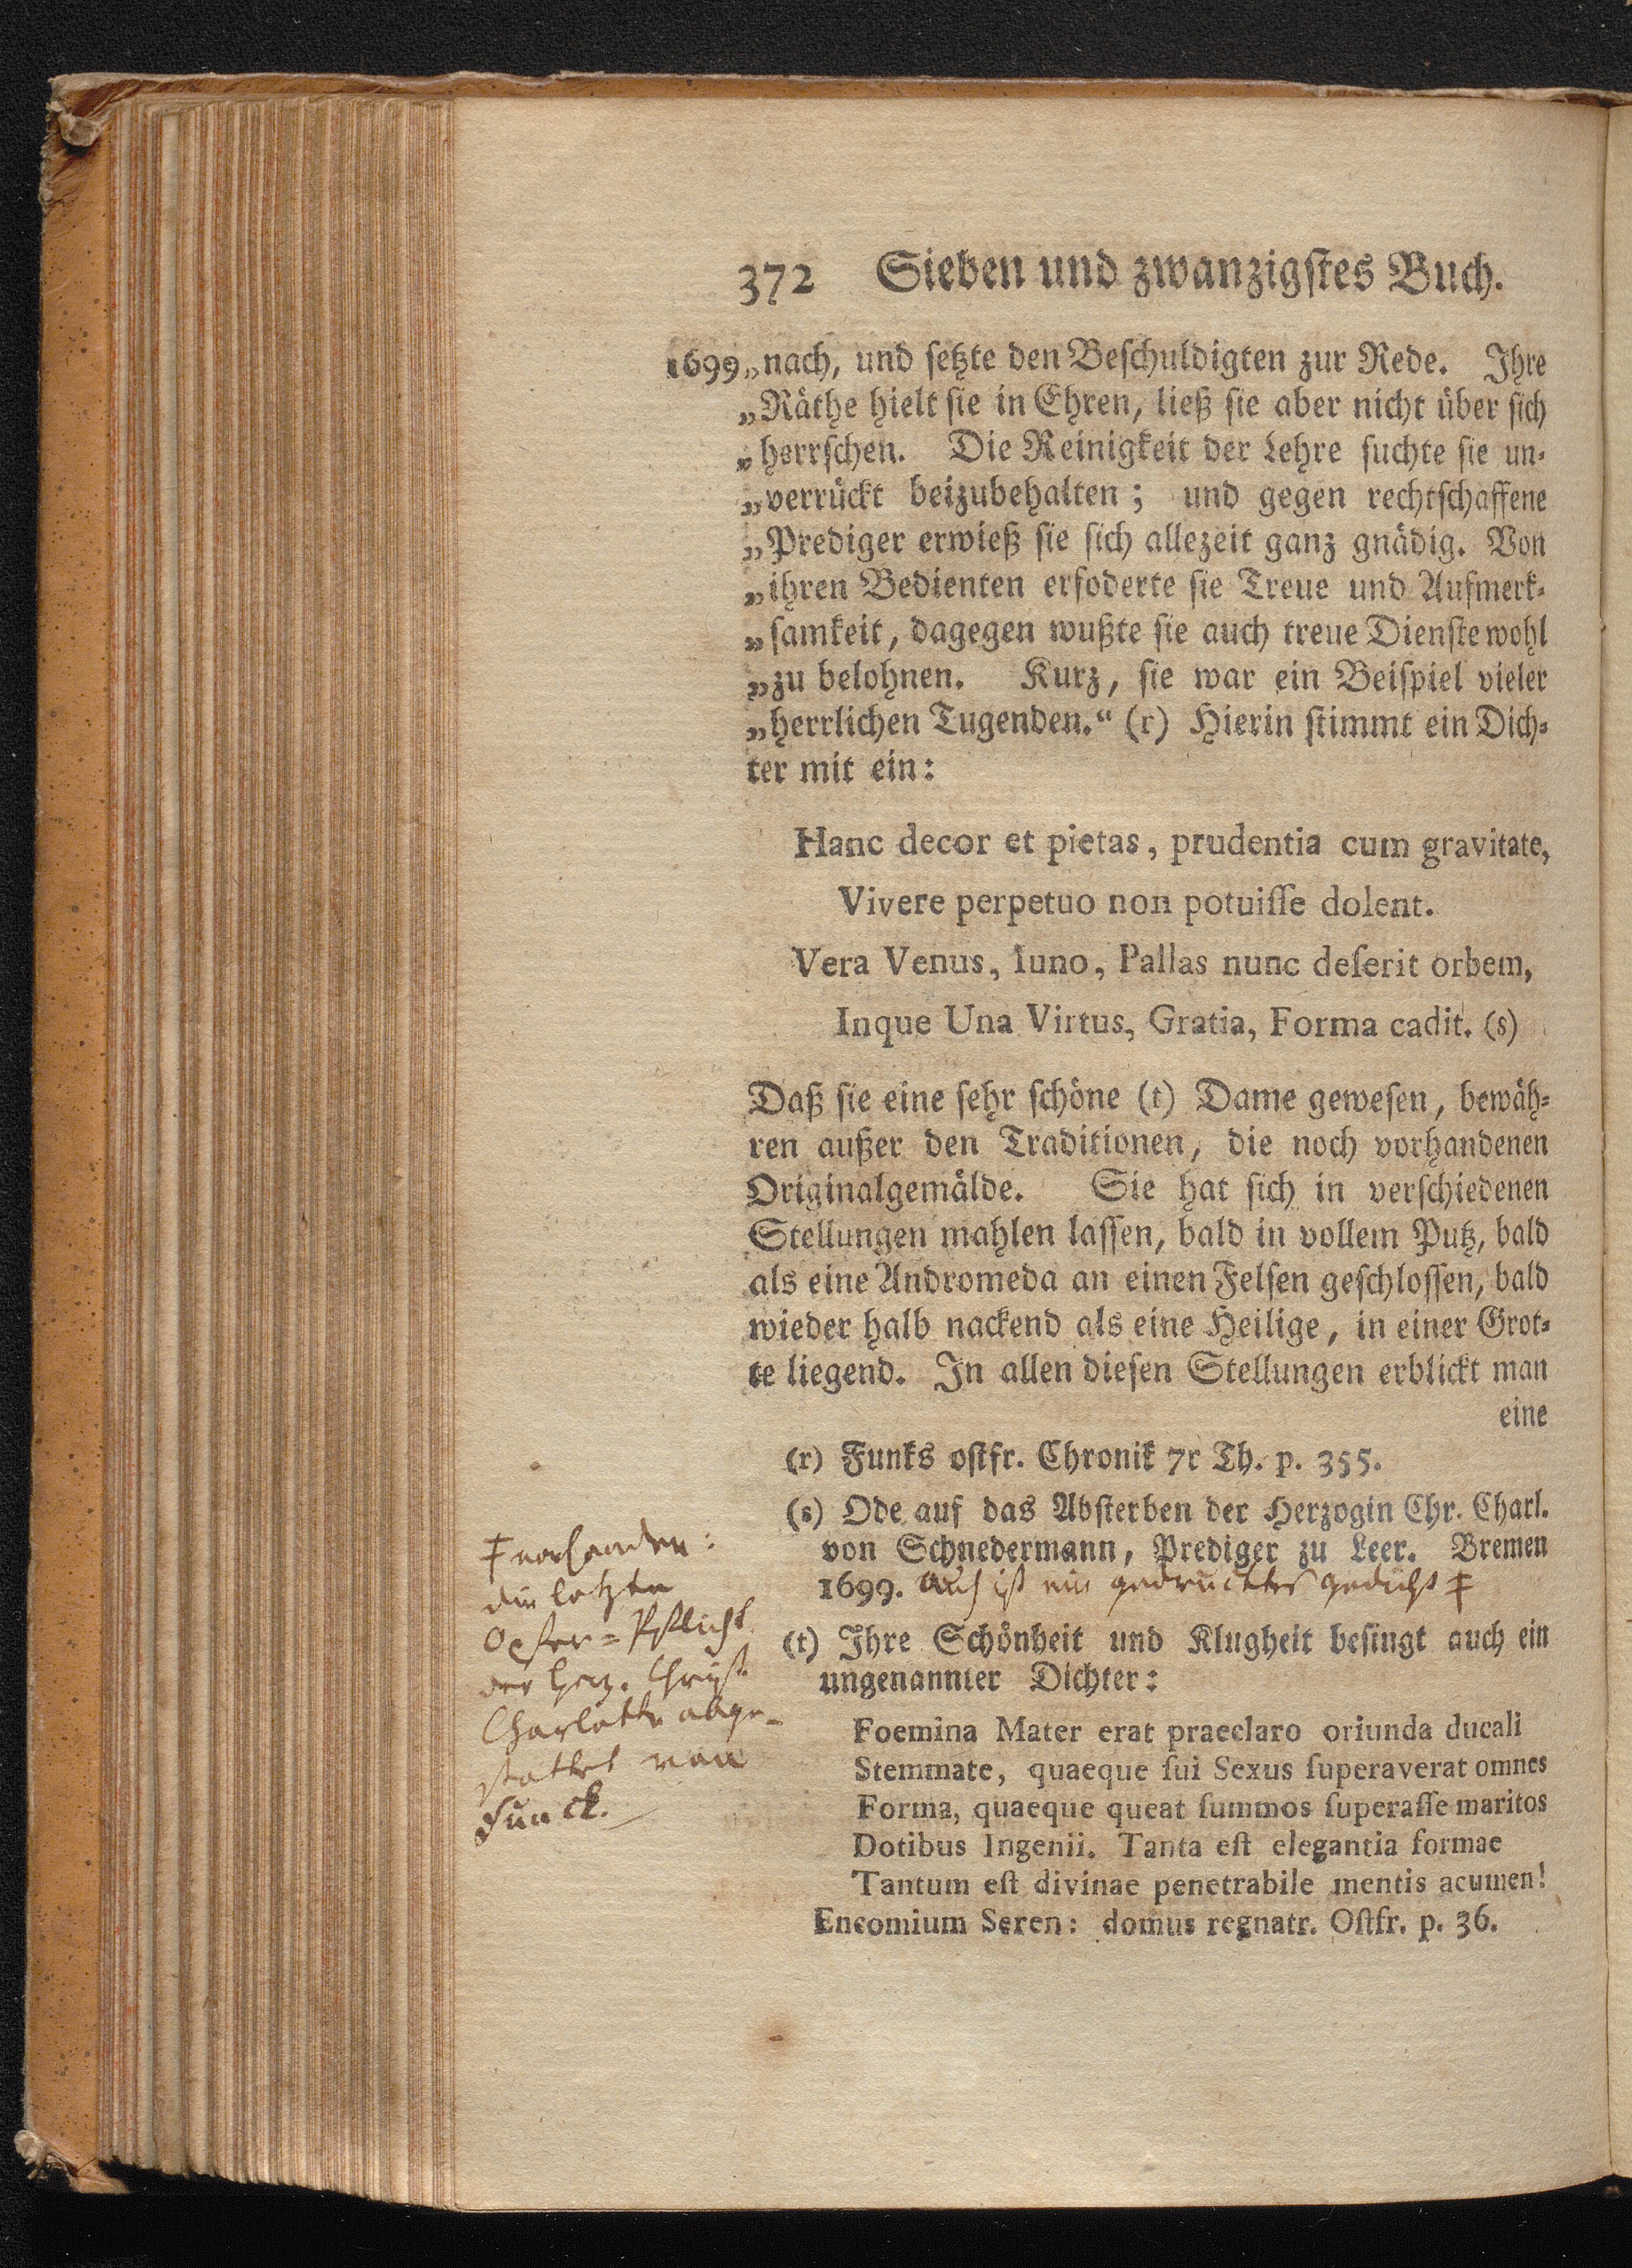 372 Sieben und zwanzigſtes Buch.
1699 „nach, und ſetzte den Beſchuldigten zur Rede. Ihre
„Räthe hielt ſie in Ehren, ließ ſie aber nicht über ſich
„herrſchen. Die Reinigkeit der Lehre ſuchte ſie un-
„verrückt beizubehalten; und gegen rechtſchaffene
„Prediger erwieß ſie ſich allezeit ganz gnädig. Von
„ihren Bedienten erfoderte ſie Treue und Aufmerk-
„ſamkeit, dagegen wußte ſie auch treue Dienſte wohl
„zu belohnen. Kurz, ſie war ein Beiſpiel vieler
„herrlichen Tugenden.“ (r) Hierin ſtimmt ein Dich-
ter mit ein:
Hanc decor et pietas, prudentia cum gravitate,
Vivere perpetuo non potuiſſe dolent.
Vera Venus, Iuno, Pallas nunc deſerit orbem,
Inque Una Virtus, Gratia, Forma cadit. (s)
Daß ſie eine ſehr ſchöne (t) Dame geweſen, bewäh-
ren außer den Traditionen, die noch vorhandenen
Originalgemälde. Sie hat ſich in verſchiedenen
Stellungen mahlen laſſen, bald in vollem Putz, bald
als eine Andromeda an einen Felſen geſchloſſen, bald
wieder halb nackend als eine Heilige, in einer Grot-
te liegend. In allen dieſen Stellungen erblickt man
eine
(r) Funks oſtfr. Chronik 7r Th. p. 355.
(s) Ode auf das Abſterben der Herzogin Chr. Charl.
von Schnedermann, Prediger zu Leer. Bremen
1699. auch ist ein gedrucktes gedicht ‡
‡ vorhanden:
die letzte
Opfer=Pflicht
der Herz. Christ
Charlotte abge-
stattet von
Funck.
(t) Ihre Schönheit und Klugheit beſingt auch ein
ungenannter Dichter:
Foemina Mater erat praeclaro oriunda ducali
Stemmate, quaeque ſui Sexus ſuperaverat omnes
Forma, quaeque queat ſummos ſuperaſſe maritos
Dotibus Ingenii. Tanta eſt elegantia formae
Tantum eſt divinae penetrabile mentis acumen!
Encomium Seren: domus regnatr. Oſtfr. p. 36.